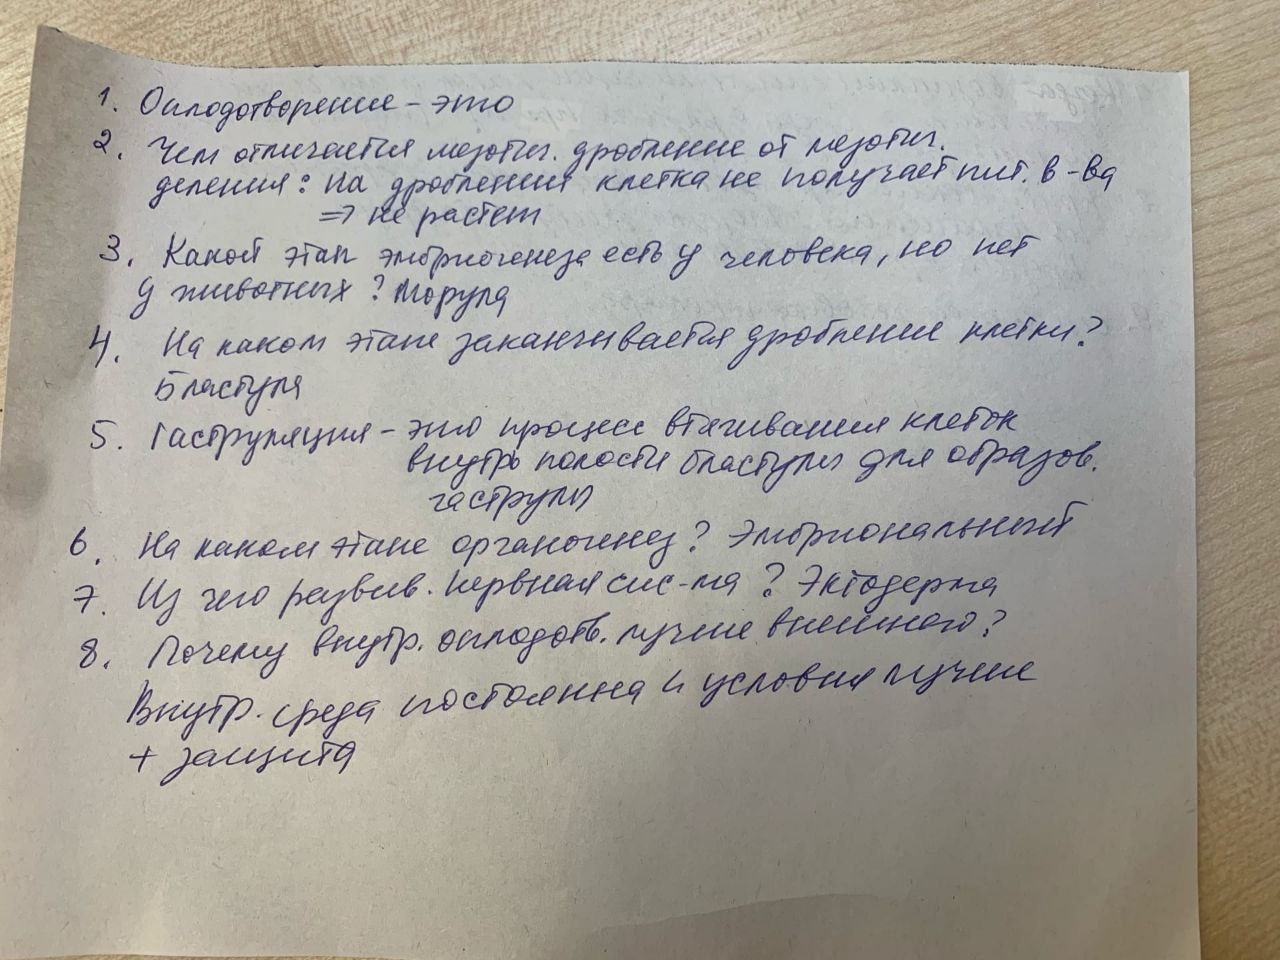 1. Оплодотворение – это
2. Чем отличается мезотич. дробление от мезотич.
деления: На дроблении клетка не получает пит. в-ва
=> не растет
3. Какой этап эмбриогенеза есть у человека, но нет
у животных? Морула
4. На каком этапе заканчивается дробление клетки?
Бластуля
5. Гаструляция – это процесс втягивания клеток
внутрь полости бластулы для образов.
гаструлы
6. На каком этапе органогенез? Эмбриональный
7. Из чего развив. нервная сис-ма? Эктодерма
8. Почему внутр. оплодотв. лучше внешнего?
Внутр. среда постоянна и условия лучше
+ защита